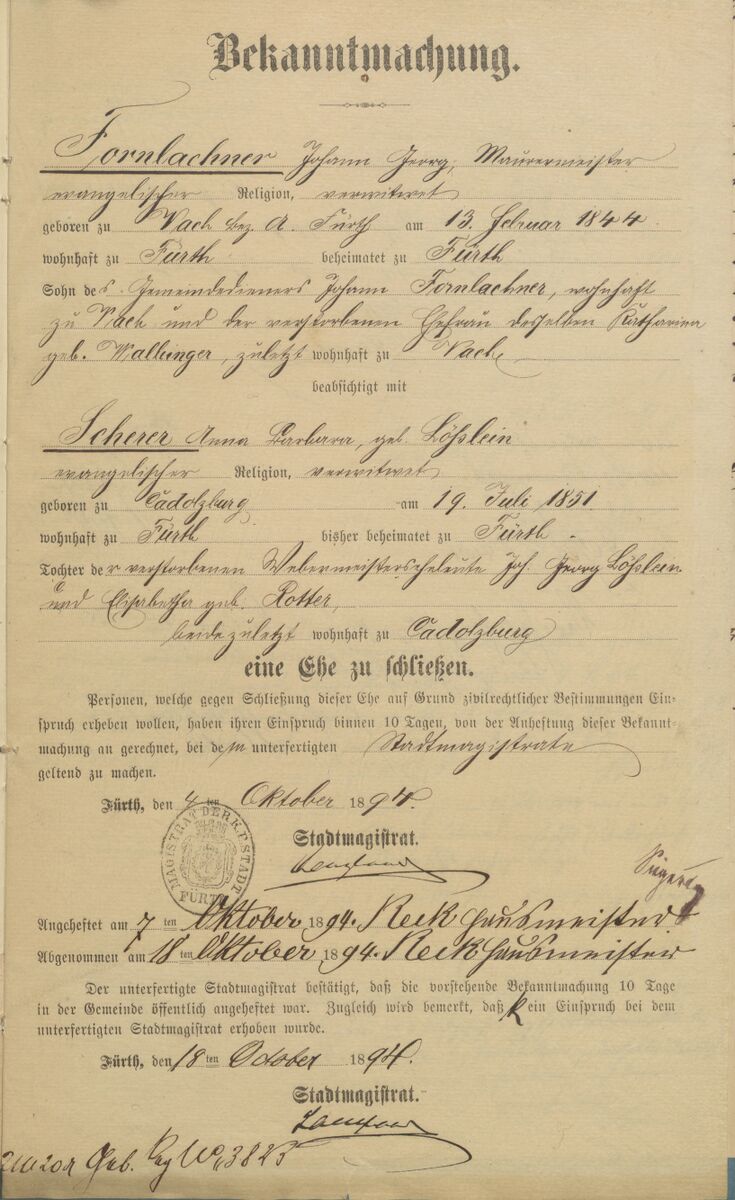 Bekanntmachung.
Fornbachner Johann Georg, Maurermeister
evangelischer Religion, verwitwet
geboren zu Vach bez. A. Fürth am 13. Februar 1844.
wohnhaft zu Fürth beheimatet zu Fürth
Sohn des Gemeindedieners Johann Fornbachner, wohnhaft
zu Vach und der verstorbenen Ehefrau desselben Katharina
geb. , zuletzt wohnhaft zu Vach,
beabsichtigt mit
Scherer Anna Barbara, geb. Lößlein
evangelischer Religion, verwitwet
geboren zu Cadolzburg am 19. Juli 1851.
wohnhaft zu Fürth bisher beheimatet zu Fürth.
Tochter der verstorbenen Webermeisterseheleute Joh. Georg Lößlein
und Elisabetha geb. Rotter,
beide zuletzt wohnhaft zu Cadolzburg
eine Ehe zu schließen.
Personen, welche gegen Schließung dieser Ehe auf Grund zivilrechtlicher Bestimmungen Ein-
spruch erheben wollen, haben ihren Einspruch binnen 10 Tagen, von der Anheftung dieser Bekannt-
machung an gerechnet, bei dem unterfertigten Stadtmagistrate
geltend zu machen.
Fürth, den 4ten Oktober 1894.
MAGISTRAT DER K. B. STADT FÜRTH
Stadtmagistrat.
Angeheftet am 7ten Oktober 1894. Reck Hausmeister
Abgenommen am 18ten Oktober 1894. Reck Hausmeister
Der unterfertigte Stadtmagistrat bestätigt, daß die vorstehende Bekanntmachung 10 Tage
in der Gemeinde öffentlich angeheftet war. Zugleich wird bemerkt, daß kein Einspruch bei dem
unterfertigten Stadtmagistrat erhoben wurde.
Fürth, den 18ten October 1894.
Stadtmagistrat.
Geb. Reg No. 3825